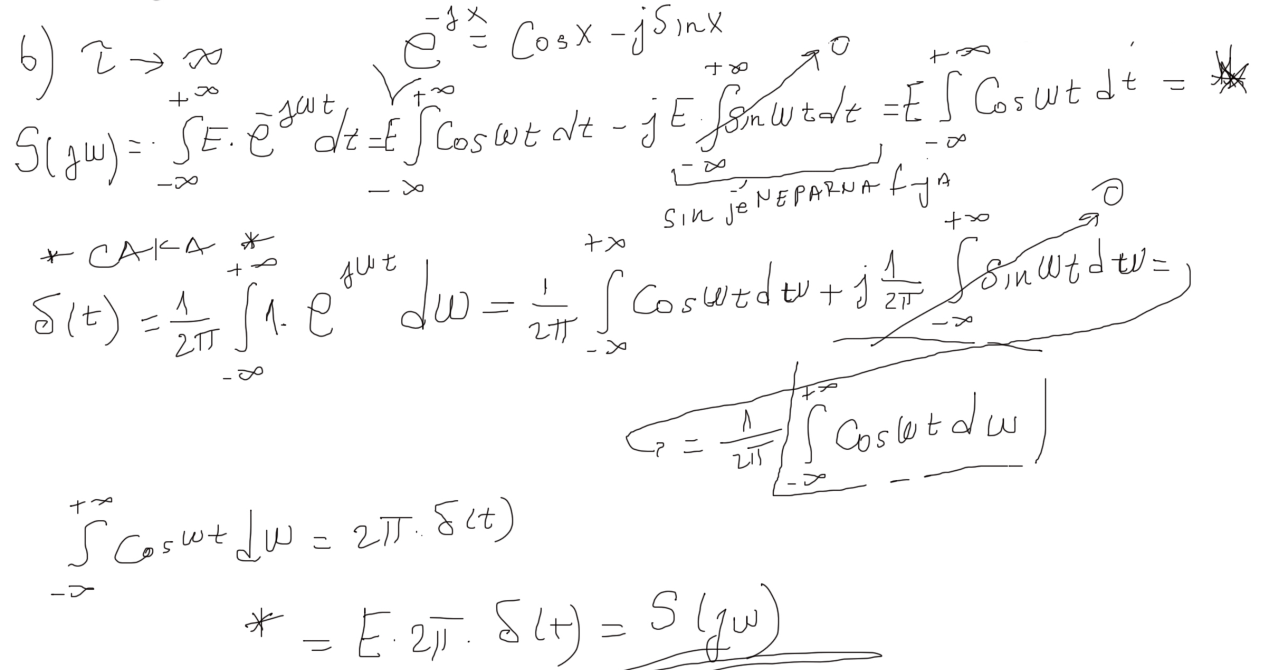 b) τ → ∞ e^{-jx} = Cosx - jSinx
S(jω) = ∫_{-∞}^{+∞} E · e^{-jωt} dt = E ∫_{-∞}^{+∞} Cosωt dt - jE · ∫_{-∞}^{+∞} Sinωt dt → 0 = E ∫_{-∞}^{+∞} Cosωt dt = *
sin je NEPARNA f-ja
* CAKA *
δ(t) = \frac{1}{2π} ∫_{-∞}^{+∞} 1 · e^{jωt} dω = \frac{1}{2π} ∫_{-∞}^{+∞} Cosωt dω + j \frac{1}{2π} ∫_{-∞}^{+∞} Sinωt dω → 0 =
= \frac{1}{2π} ∫_{-∞}^{+∞} Cosωt dω
∫_{-∞}^{+∞} Cosωt dω = 2π · δ(t)
* = E · 2π · δ(t) = S(jω)